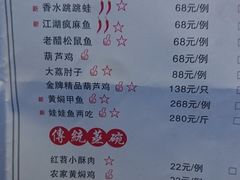 新 香水跳跳蛙 68元/例
新 江湖疯麻鱼 68元/例
老醋松鼠鱼 68元/例
葫芦鸡 68元/例
大荔肘子 88元/例
金牌精品葫芦鸡 138元/只
新 黄焖甲鱼 268元/例
新 娃娃鱼两吃 280元/斤
傳統蒸碗
红苕小酥肉 22元/例
农家黄焖鸡